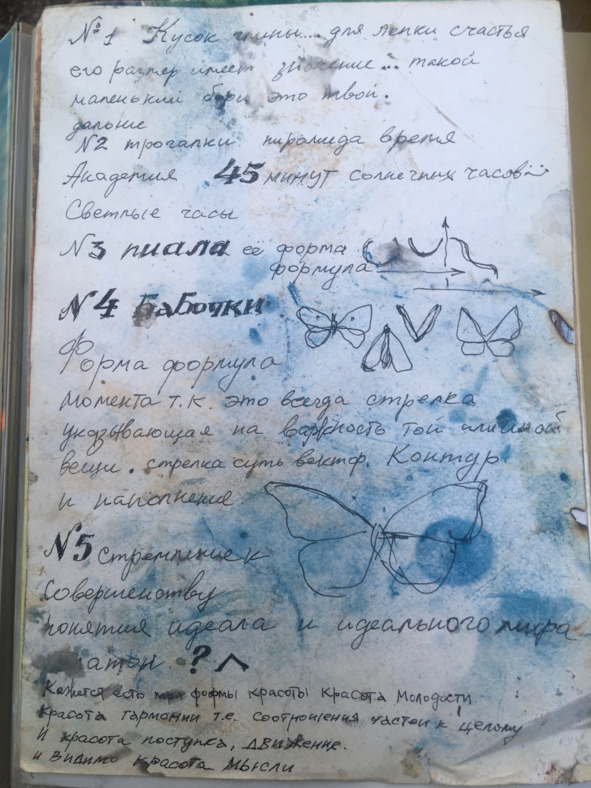 №1 Кусок глины... для лепки счастья
его размер имеет значение... такой
маленький бери это твой.
дальше
N2 трогалки пирамида время
Академия 45 минут солнечных часов
Светлые часы
N3 пиала её форма
формула
N4 бабочки
Форма формула
момента т.к. это всегда стрелка
указывающая на важность той или иной
вещи. стрелка суть вектор. Контур
и наполнение
N5 Стремление к
Совершенству
понятия идеала и идеального мира
Платон ?
Кажется есть три формы красоты Красота Молодости
Красота гармонии т.е. соотношения частей к целому
И красота поступка, движение.
и видимо красота Мысли